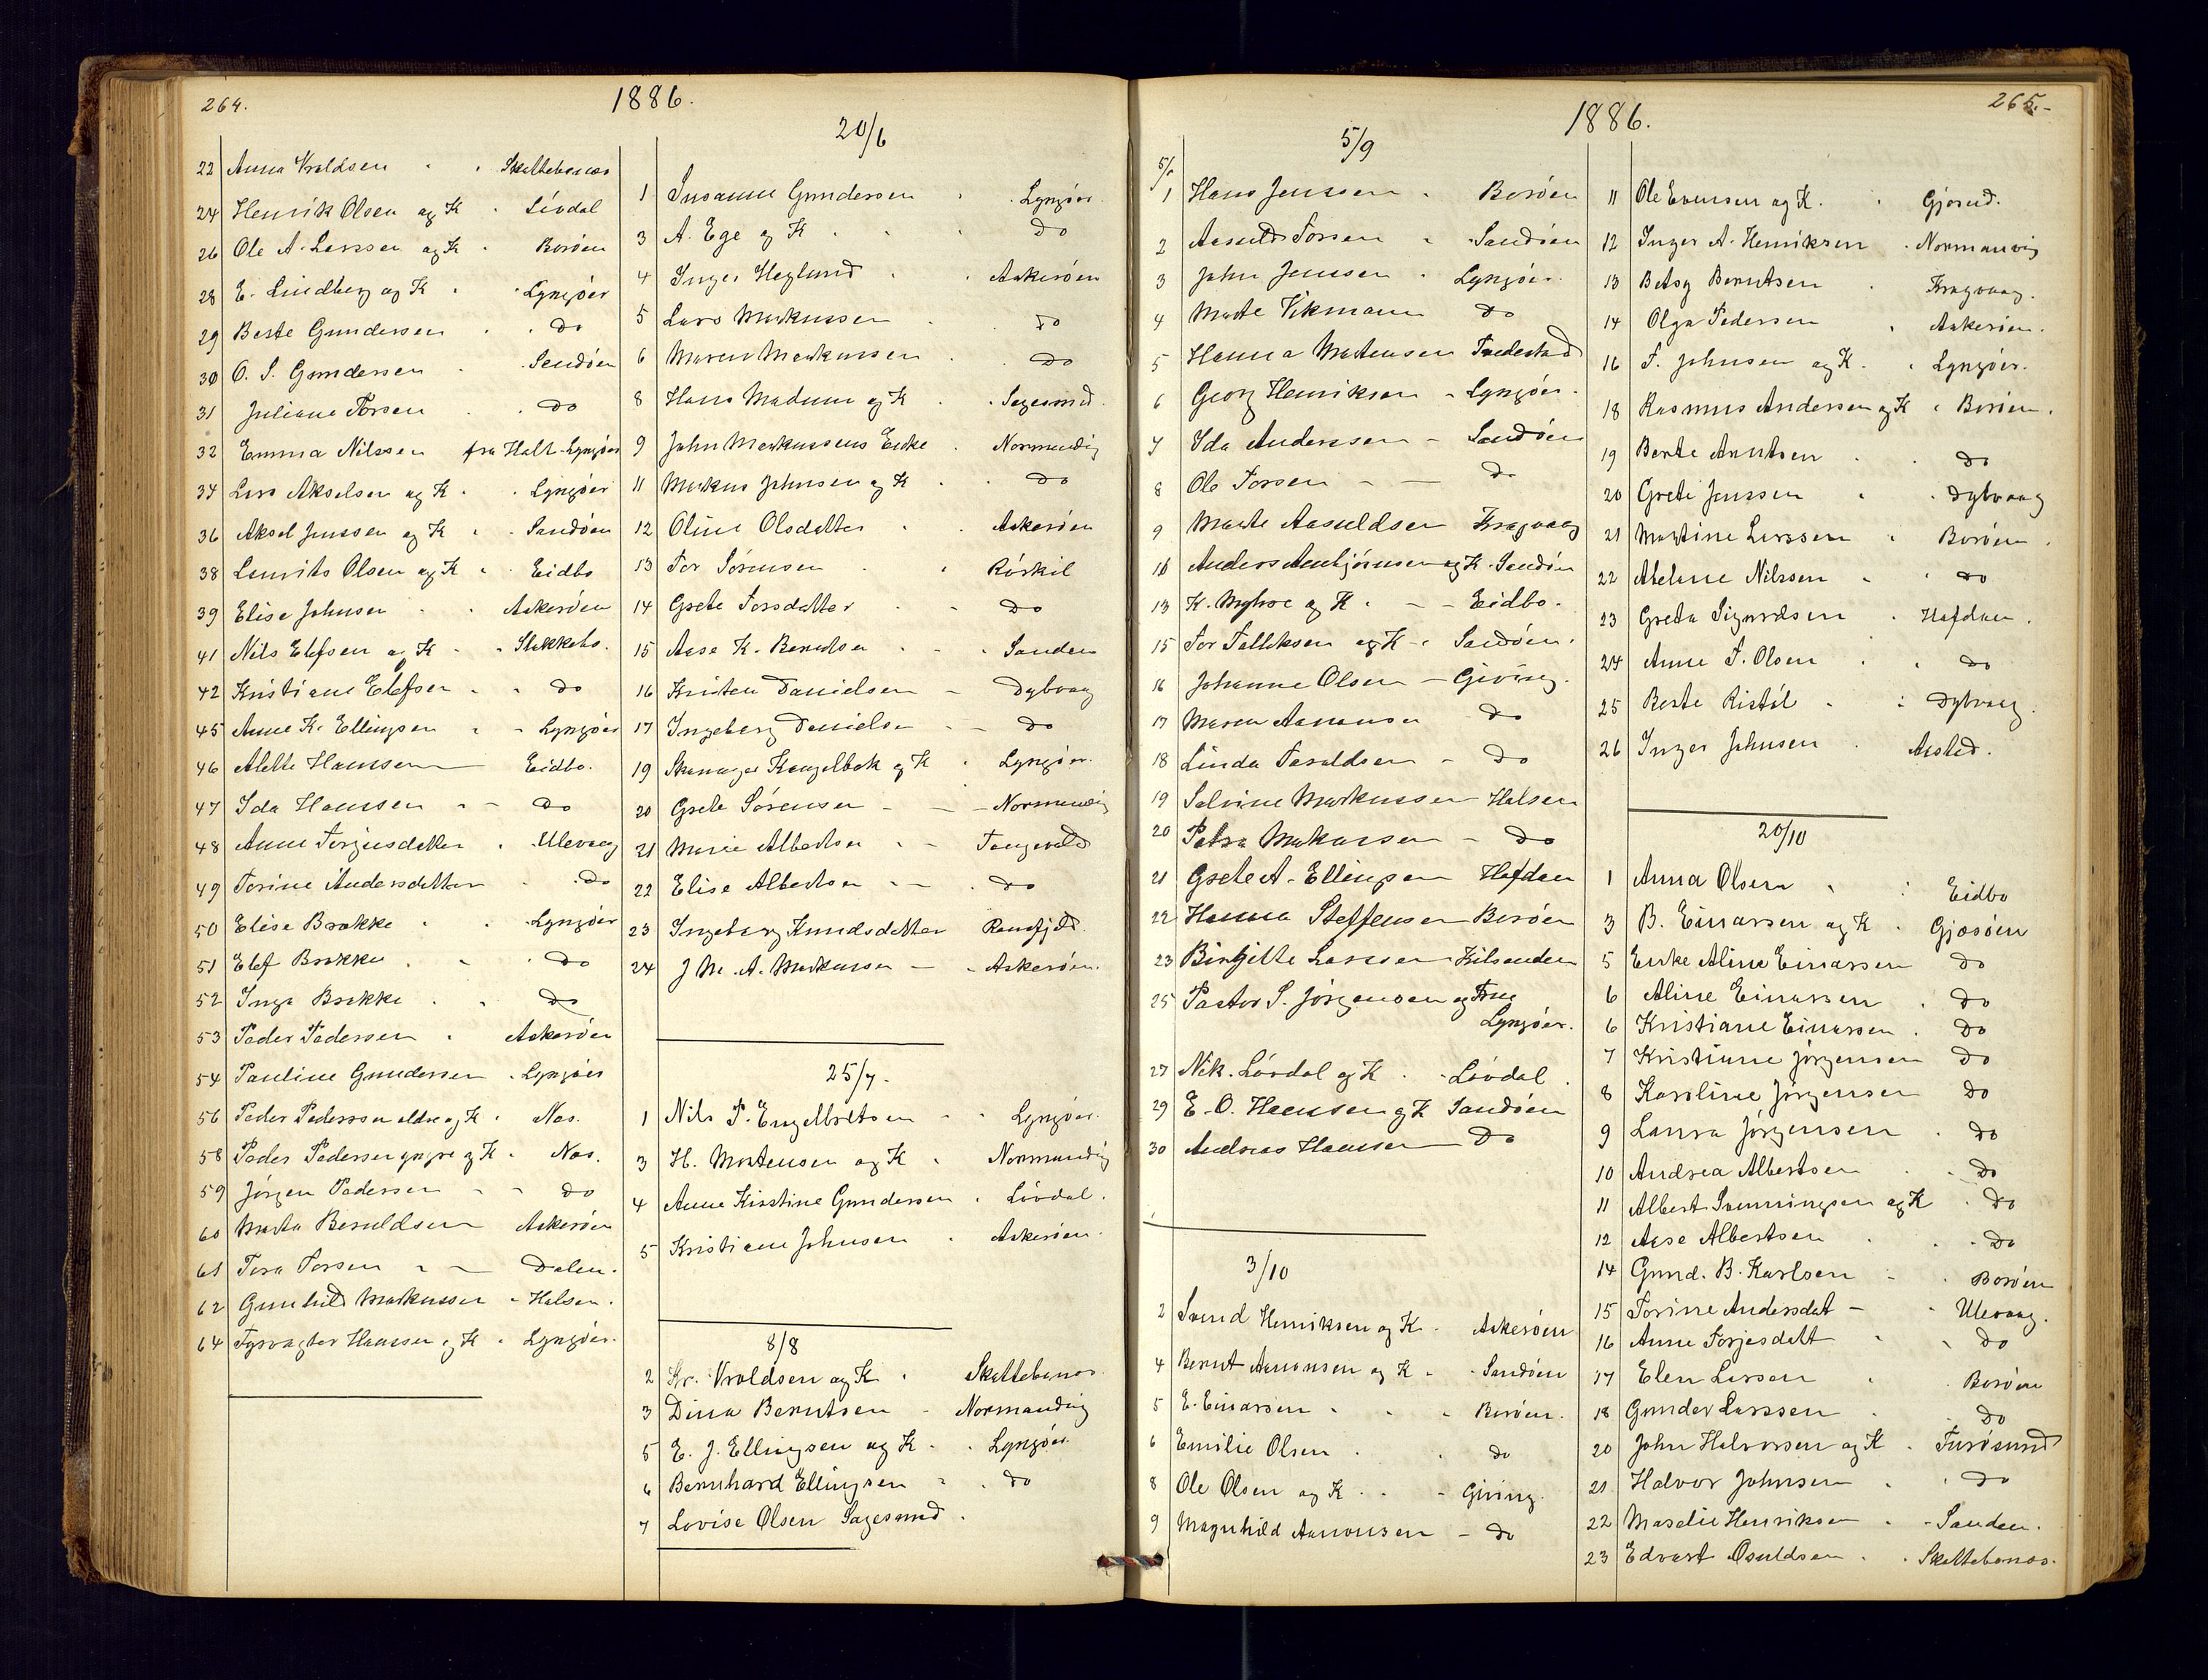 264.
1886.
22 Anna Vroldsen " " Skottebenæs
24 Henrik Olsen og K " Lövdal
26 Ole A. Larssen og K " Borøen
28 E. Lindberg og K " Lyngør
29 Berte Gundersen " do
30 O. S. Gundersen " Sandøen
31 Juliane Torsen " do
32 Emma Nilssen fra Holt - Lyngør
34 Lars Akselsen og K " Lyngør
36 Aksel Jenssen og K " Sandøen
38 Laurits Olsen og K " Eidbo
39 Elise Johnsen " Askerøen
41 Nils Elefsen og K " Stokkebo.
42 Kristiane Elefsen " do
45 Anne K. Ellingsen " Lyngør
46 Alette Hanssen — Eidbo.
47 Ida Hanssen " — do
48 Anne Terjesdatter " Ulevaag
49 Torine Andersdatter " do
50 Elise Brekke " Lyngør
51 Elef Brekke " do
52 Inga Brekke " do
53 Peder Pedersen " Askerøen
54 Pauline Gundersen " Lyngør
56 Peder Pedersen eldre og K " Næs.
58 Peder Pedersen yngre og K " Næs.
59 Jörgen Pedersen " do
60 Marta Beruldsen Askerøen
61 Tora Torsen " — Dalen.
62 Gunhild Markussen " Halsen.
64 Fyrvagter Hanssen og K " Lyngør.
20/6
1 Susanne Gundersen " Lyngør
3 A. Ege og K " do
4 Inger Heglund " Askerøen
5 Lars Markussen " do
6 Maren Markussen " do
8 Hans Madsen og K " Sagesund.
9 John Markussens Enke " Normandvig
11 Markus Johnsen og K " do
12 Oline Olsdatter " Askerøen
13 Tor Sörensen " Röskil
14 Grete Torsdatter " do
15 Aase K. Berntsen " Sanden
16 Kristen Danielsen — Dybvaag
17 Ingeborg Danielsen — do
19 Skomager Kengelbek og K " Lyngør.
20 Grete Sörensen — Normandvig
21 Marie Albertsen " — Tangevald
22 Elise Albertsen " — do
23 Ingeborg Knudsdatter Ramfjeld.
24 J. M. A. Markussen — Askerøen.
25/7.
1 Nils P. Engelbretsen " Lyngør.
3 H. Mortensen og K " Normandvig
4 Anne Kirstine Gundersen " Lövdal.
5 Kristiane Johnsen " Askerøen.
8/8
2 Kr. Vroldsen og K " Skottebenæs
3 Dina Berntsen " Normandvig
5 E. J. Ellingsen og K " Lyngør
6 Bernhard Ellingsen " do
7 Lovise Olsen Sagesund "
265.-
1886.
5/9
1 Hans Jenssen " Borøen
2 Aasuld Torsen " Sandøen
3 John Jenssen " Lyngør.
4 Marte Vikmann do
5 Hanna Mortensen Tvedestad
6 Georg Henriksen " Lyngør.
7 Ida Anderssen — Sandøen
8 Ole Torsen — — do
9 Marte Aasuldsen Kragvaag
10 Anders Arnbjörnsen og K. Sandøen
13 K. Myhre og K. — Eidbo.
15 Tor Tellefsen og K " Sandøen.
16 Johanne Olsen — Giving.
17 Maren Aanonsen do
18 Linda Taraldsen — do
19 Salvine Markussen Halsen
20 Petra Markussen — do
21 Grete A. Ellingsen Hafdan
22 Hanna Steffensen Borøen
23 Birgitte Larssen Kilsanden
25 Pastor S. Jörgensen og Frue
Lyngør.
27 Nik. Lövdal og K. " Lövdal.
29 E. O. Hanssen og K Sandøen
30 Andreas Hanssen — do
3/10
2 Svend Henriksen og K. Askerøen
4 Bernt Aanonsen og K " Sandøen
5 E. Einarsen " Borøen.
6 Emilie Olsen " do
8 Ole Olsen og K " Giving.
9 Magnhild Aanonsen — do
11 Ole Evensen og K. Gjerund.
12 Inger A. Henriksen " Normanvig
13 Betsy Berntsen " Kragvaag.
14 Olga Pedersen " Askerøen.
16 T. Johnsen og K " Lyngør.
18 Rasmus Andersen og K " Borøen.
19 Berte Arntsen " do
20 Grete Jenssen " Dybvaag
21 Martine Larssen " Borøen.
22 Abeline Nilssen " do
23 Greta Sigurdsen " Hafdan.
24 Anne T. Olsen " do
25 Berte Ristöl " Dybvaag.
26 Inger Johnsen " Aasted.
20/10
1 Anna Olsen " Eidbo
3 B. Einarsen og K " Gjæsøen
5 Enke Aline Einarssen do
6 Aline Einarssen " do
6 Kristiane Einarssen " do
7 Kristiane Jörgensen do
8 Karoline Jörgensen do
9 Laura Jörgensen " do
10 Andrea Albertsen " do
11 Albert Svenningsen og K " do
12 Aase Albertsen " do
14 Gund. B. Karlsen " Borøen
15 Torine Andersdat — Ulevaag.
16 Anne Terjesdatt " do
17 Elen Larsen " Borøen
18 Gunder Larssen " do
20 John Halvorsen og K " Furøsund
21 Halvor Johnsen " do
22 Maselie Henriksen " Sanden.
23 Edvart Osuldsen " Skottebenæs.